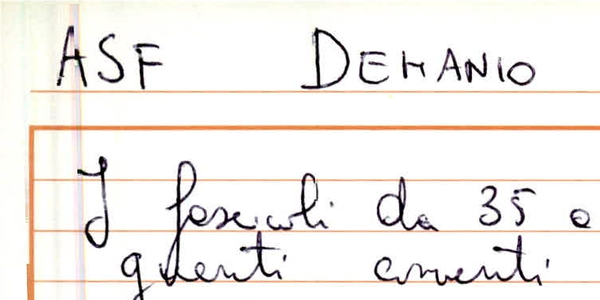 ASF DEMANIO
I fascicoli da 35 a
quenti conventi